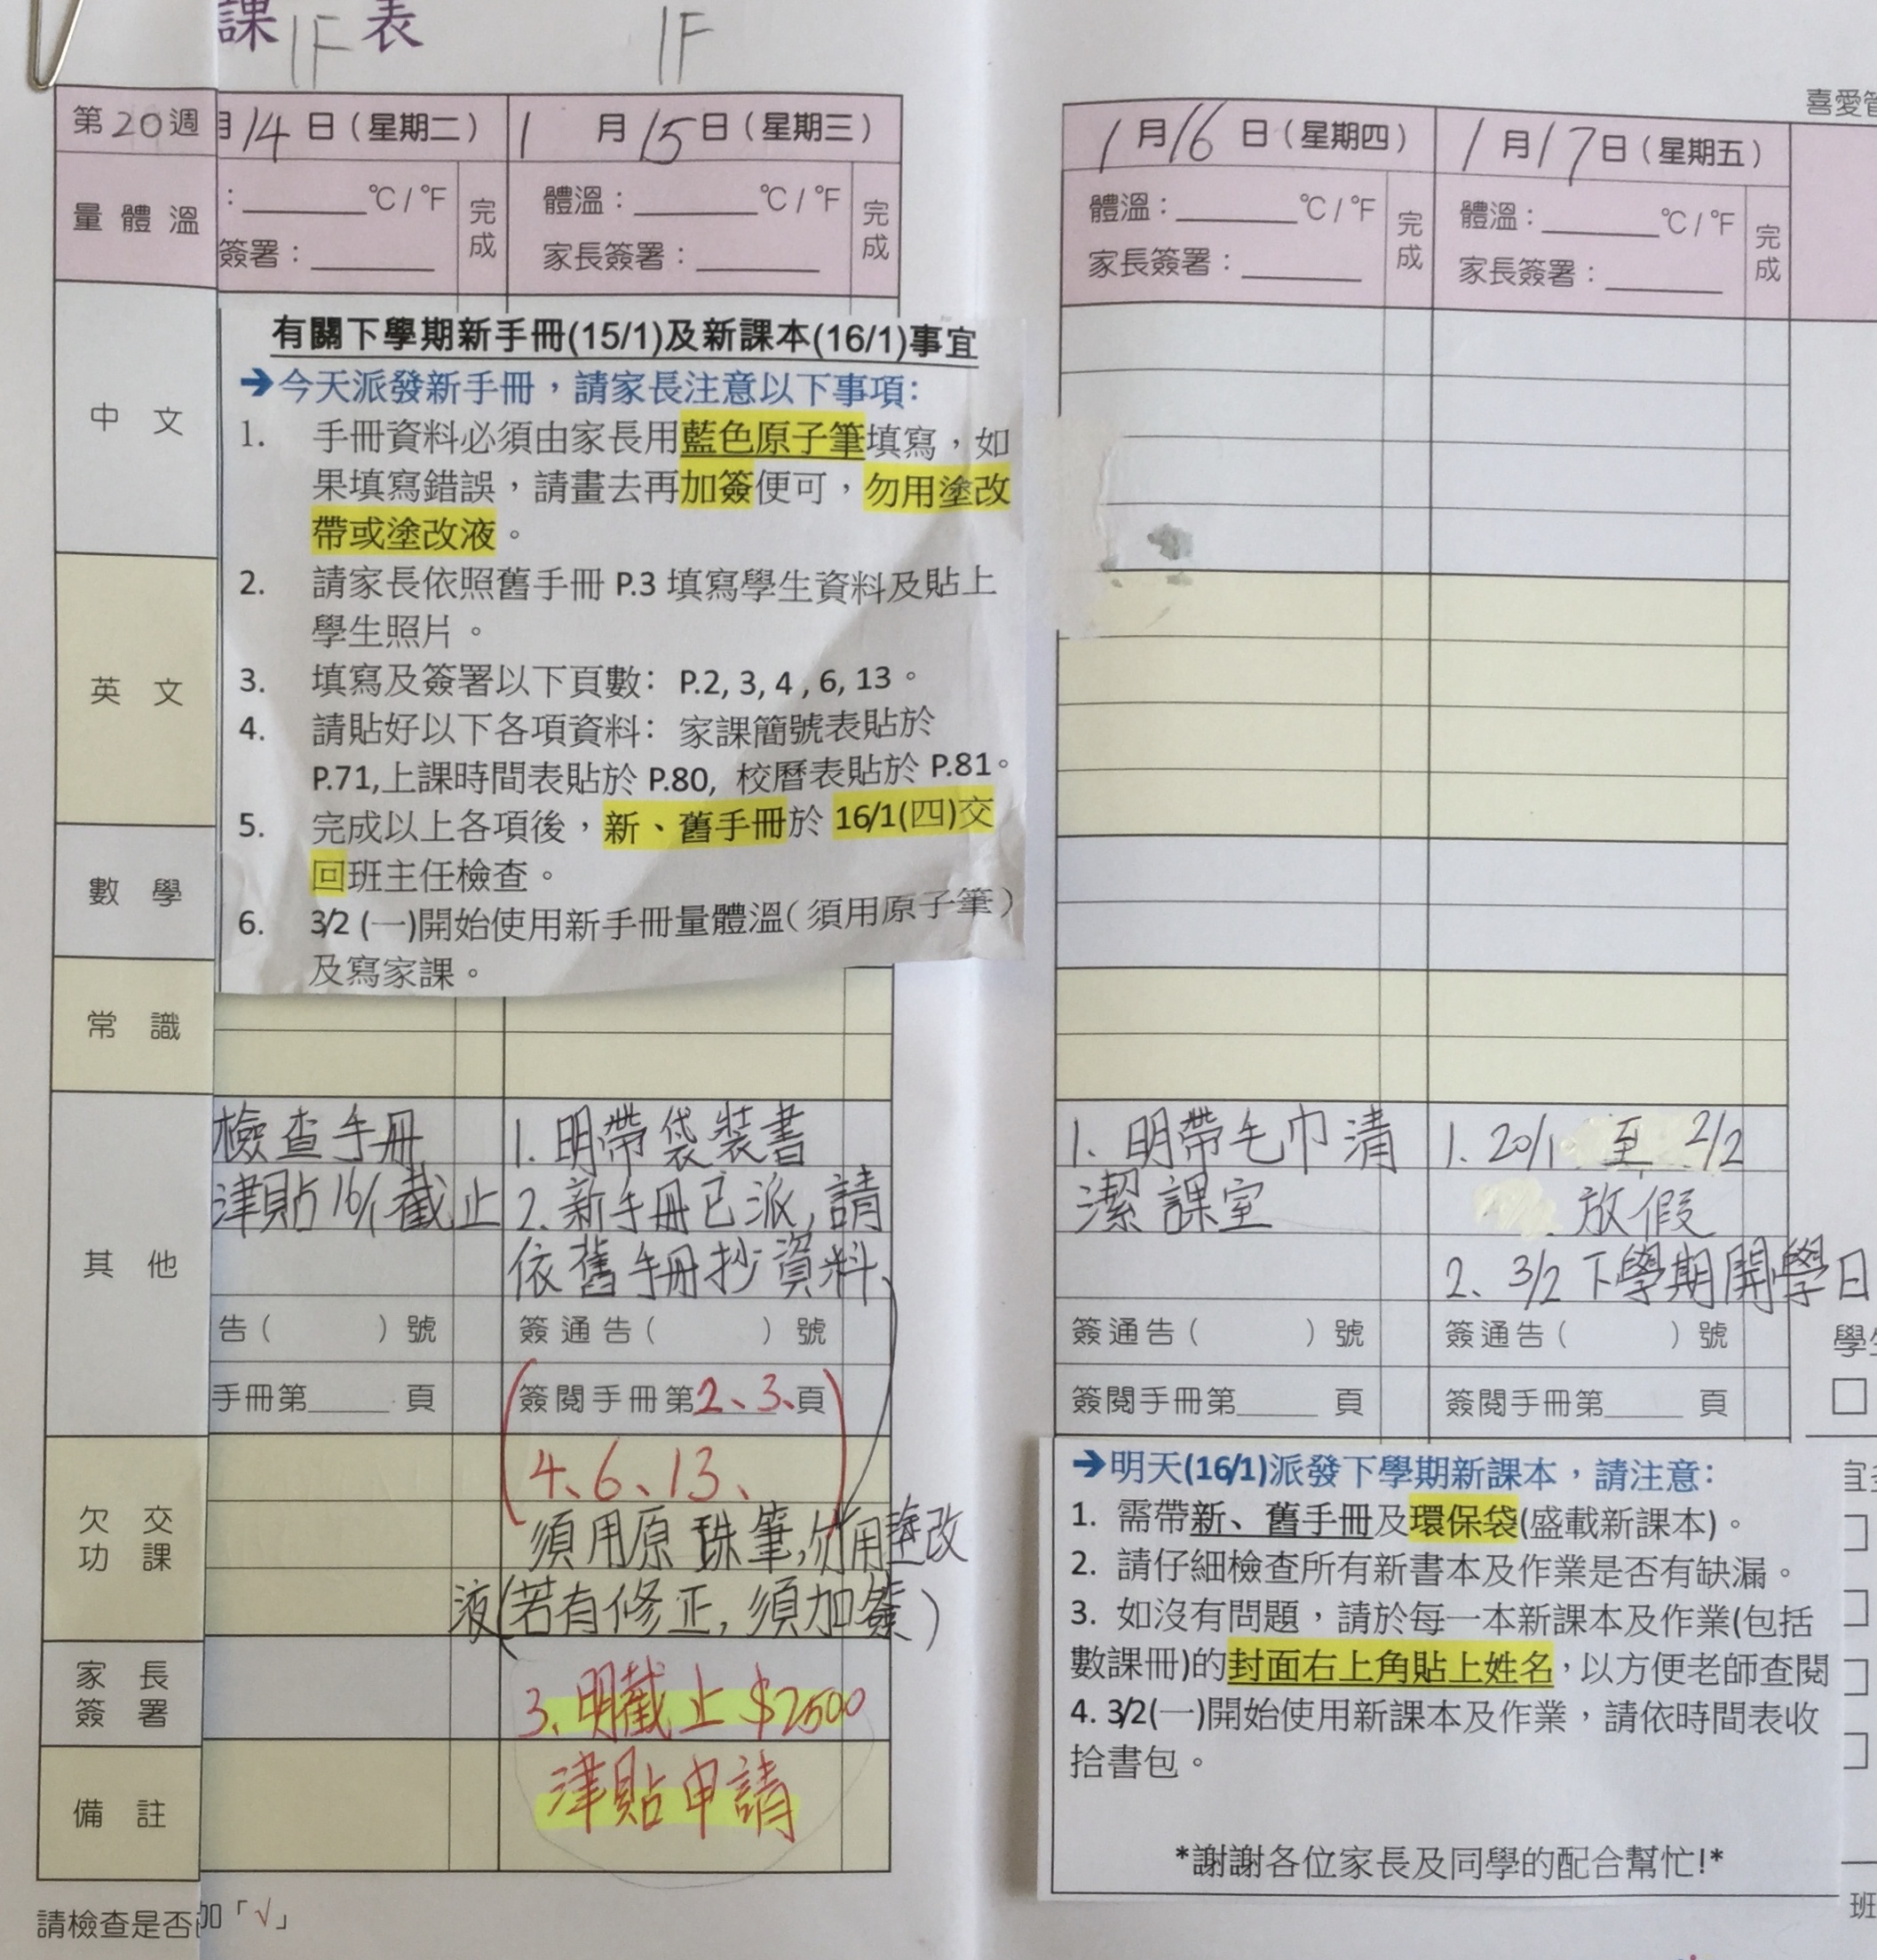 課 表
1F 1F
喜愛
第20週
月14日(星期二)
1月15日(星期三)
1月16日(星期四)
1月17日(星期五)
量體溫
：______℃/℉ 完成
簽署：______
體溫：______℃/℉ 完成
家長簽署：______
體溫：______℃/℉ 完成
家長簽署：______
體溫：______℃/℉ 完成
家長簽署：______
中文
英文
數學
常識
其他
欠交功課
家長簽署
備註
有關下學期新手冊(15/1)及新課本(16/1)事宜
→今天派發新手冊，請家長注意以下事項：
1. 手冊資料必須由家長用藍色原子筆填寫，如
果填寫錯誤，請畫去再加簽便可，勿用塗改
帶或塗改液。
2. 請家長依照舊手冊 P.3 填寫學生資料及貼上
學生照片。
3. 填寫及簽署以下頁數： P.2, 3, 4 , 6, 13。
4. 請貼好以下各項資料： 家課簡號表貼於
P.71,上課時間表貼於 P.80, 校曆表貼於 P.81。
5. 完成以上各項後，新、舊手冊於 16/1(四)交
回班主任檢查。
6. 3/2 (一)開始使用新手冊量體溫(須用原子筆)
及寫家課。
檢查手冊
津貼16/1截止
告( )號
手冊第______頁
1. 明帶袋裝書
2. 新手冊已派，請
依舊手冊抄資料、
簽通告( )號
(簽閱手冊第2、3、頁
4、6、13、)
須用原珠筆，勿用塗改
液(若有修正，須加簽)
3、明截止$2500
津貼申請
1. 明帶毛巾清
潔課室
簽通告( )號
簽閱手冊第______頁
1. 20/1 至 2/2
放假
2、3/2下學期開學日
簽通告( )號
簽閱手冊第______頁
→明天(16/1)派發下學期新課本，請注意：
1. 需帶新、舊手冊及環保袋(盛載新課本)。
2. 請仔細檢查所有新書本及作業是否有缺漏。
3. 如沒有問題，請於每一本新課本及作業(包括
數課冊)的封面右上角貼上姓名，以方便老師查閱
4. 3/2(一)開始使用新課本及作業，請依時間表收
拾書包。
*謝謝各位家長及同學的配合幫忙!*
請檢查是否
加「√」
班